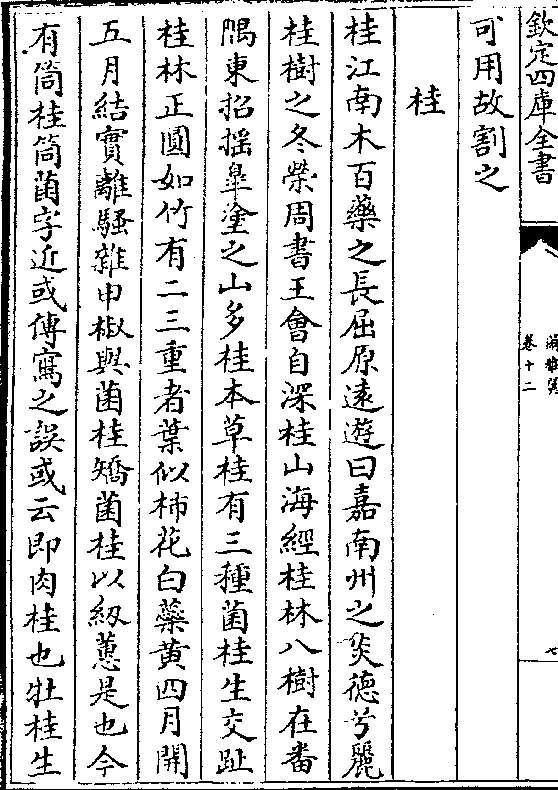 欽定四庫全書
爾雅翼
卷十二
七
可用故割之
桂
桂江南木百藥之長屈原遠遊曰嘉南州之炎德兮麗
桂樹之冬榮周書王會自深桂山海經桂林八樹在番
隅東招揺臯塗之山多桂本草桂有三種菌桂生交趾
桂林正圓如竹有二三重者葉似柿花白蘂黄四月開
五月結實離騷雜申椒與菌桂矯菌桂以紉蕙是也今
有筒桂筒菌字近或傳寫之誤或云即肉桂也牡桂生